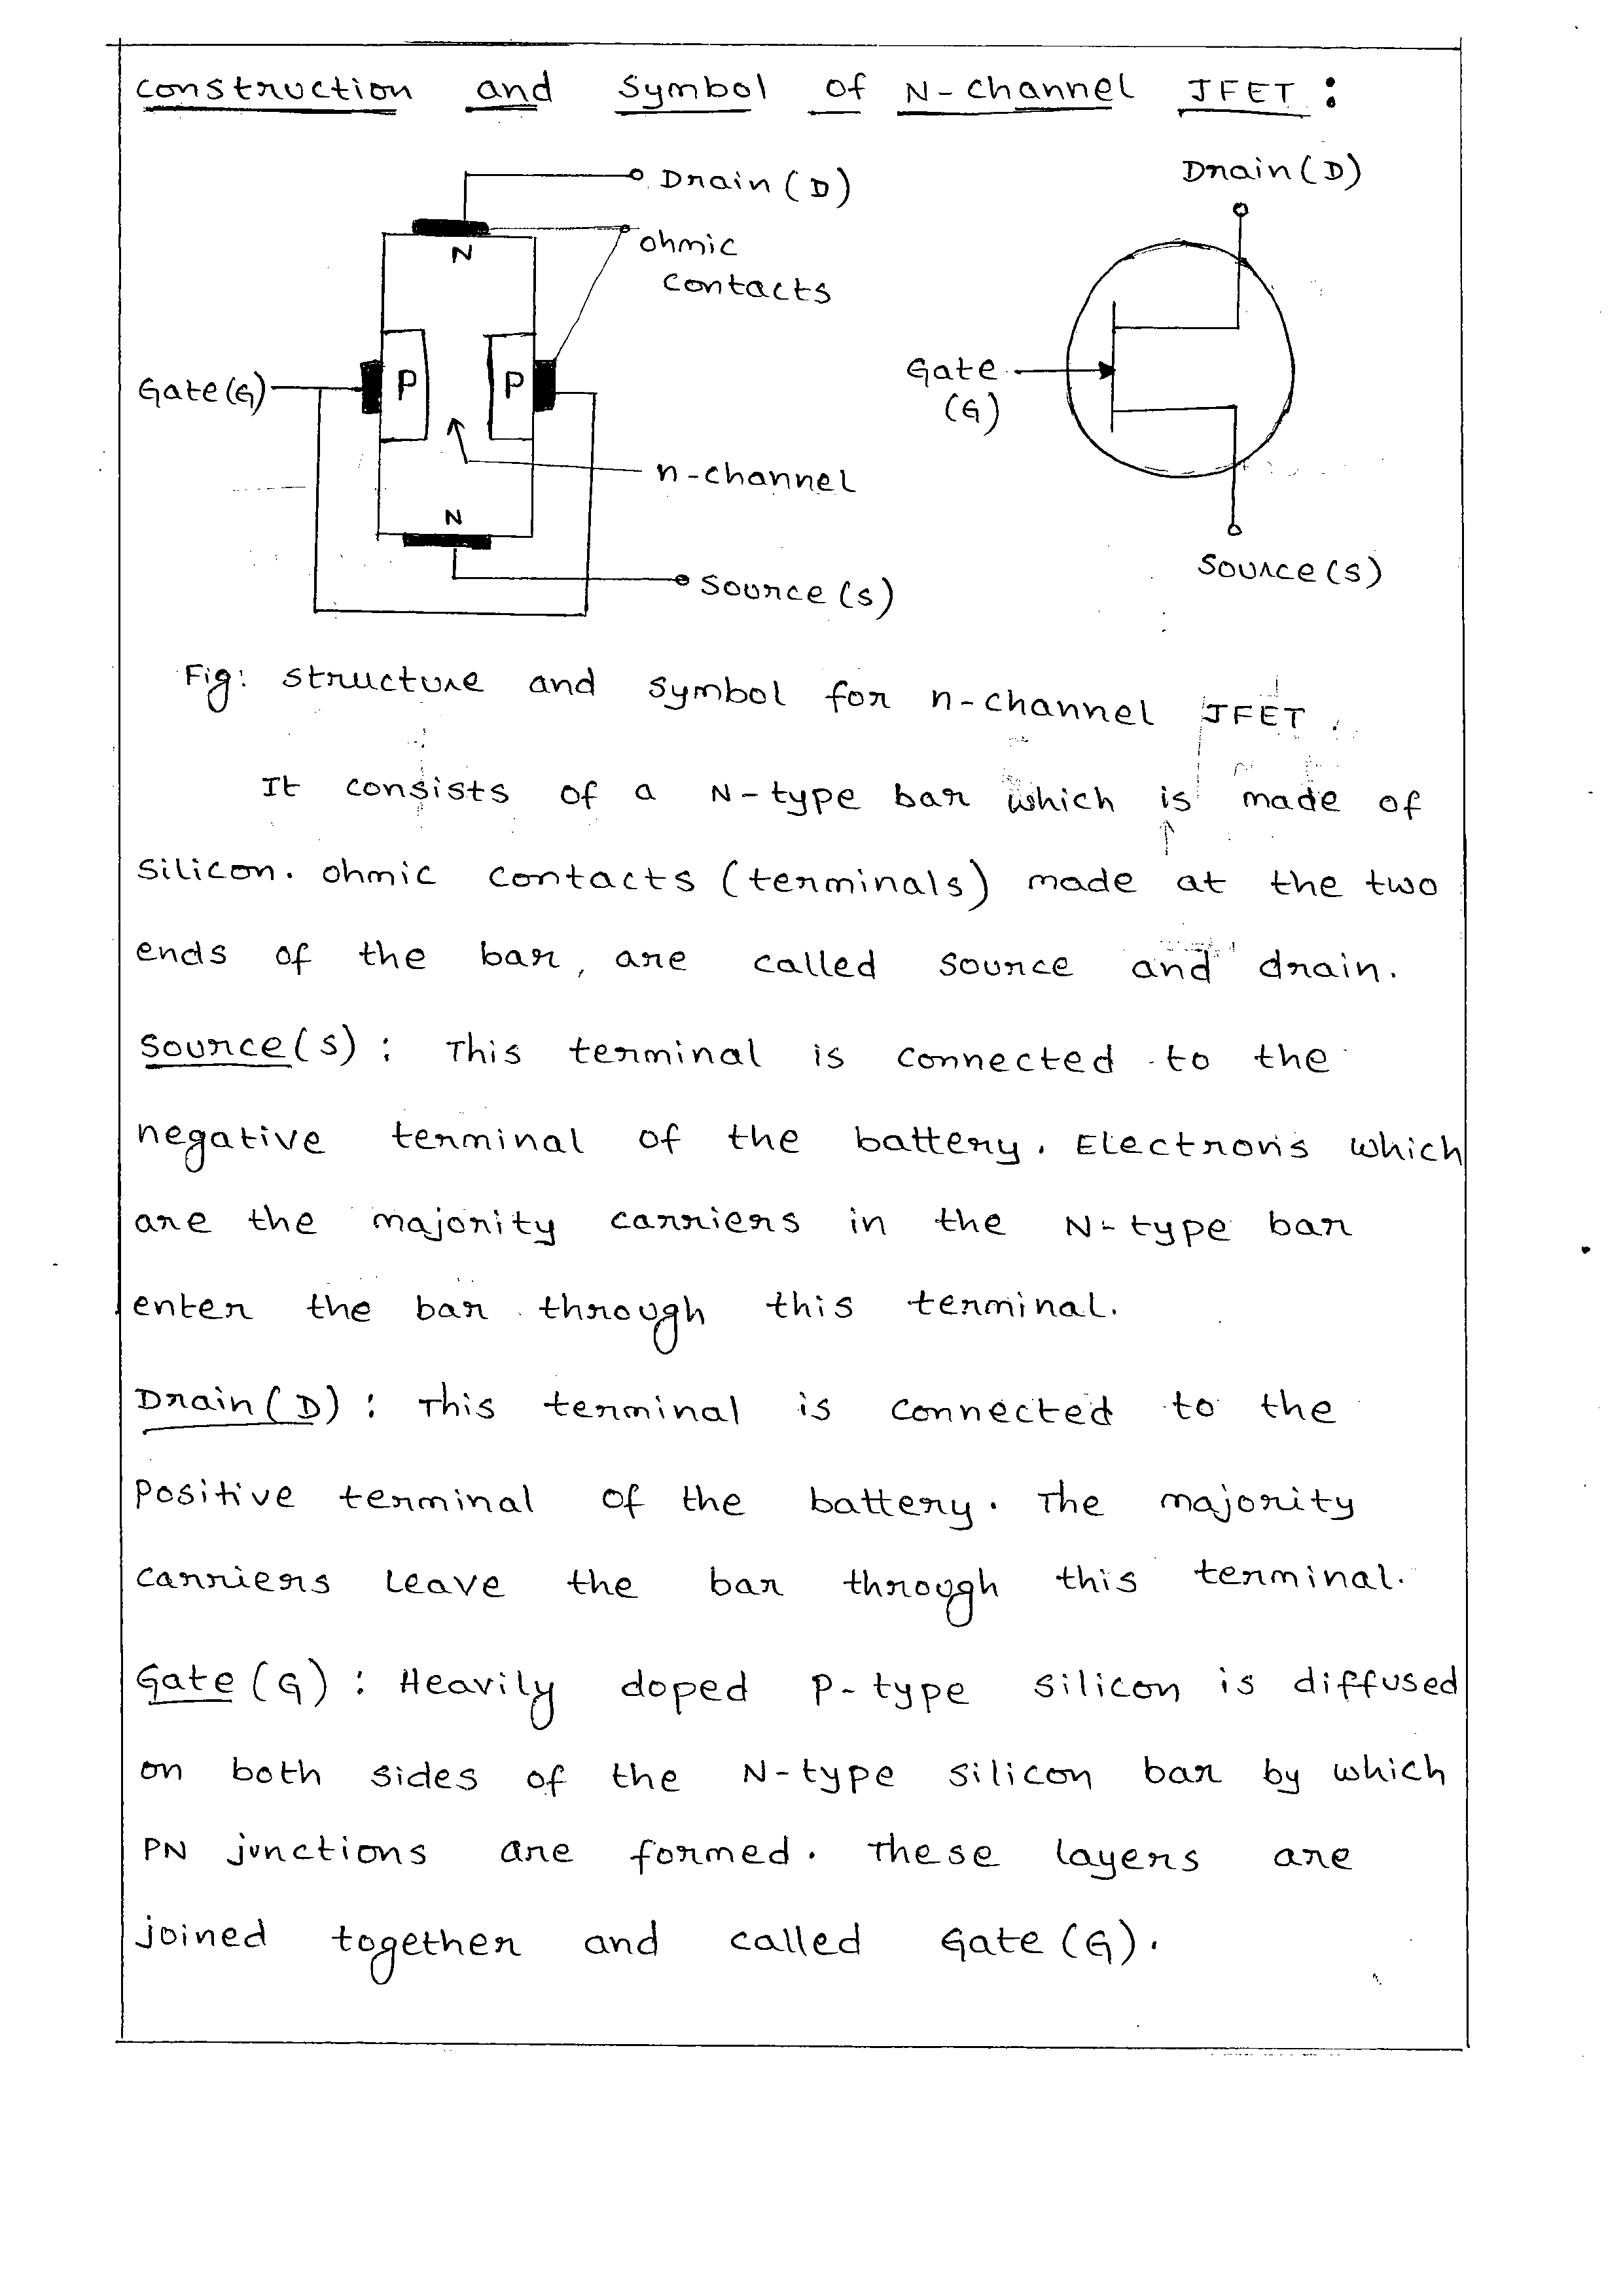 construction and symbol of N-channel JFET :
Drain (D)
ohmic
contacts
N
P
P
Gate (G)
n-channel
N
Source (s)
Drain (D)
Gate
(G)
Source (s)
Fig: structure and symbol for n-channel JFET.
It consists of a N-type bar which is made of
silicon. ohmic contacts (terminals) made at the two
ends of the bar, are called source and drain.
Source (s) : This terminal is connected to the
negative terminal of the battery. Electrons which
are the majority carriers in the N-type bar
enter the bar through this terminal.
Drain (D) : This terminal is connected to the
positive terminal of the battery. The majority
carriers leave the bar through this terminal.
Gate (G) : Heavily doped P-type silicon is diffused
on both sides of the N-type silicon bar by which
PN junctions are formed. These layers are
joined together and called Gate (G).